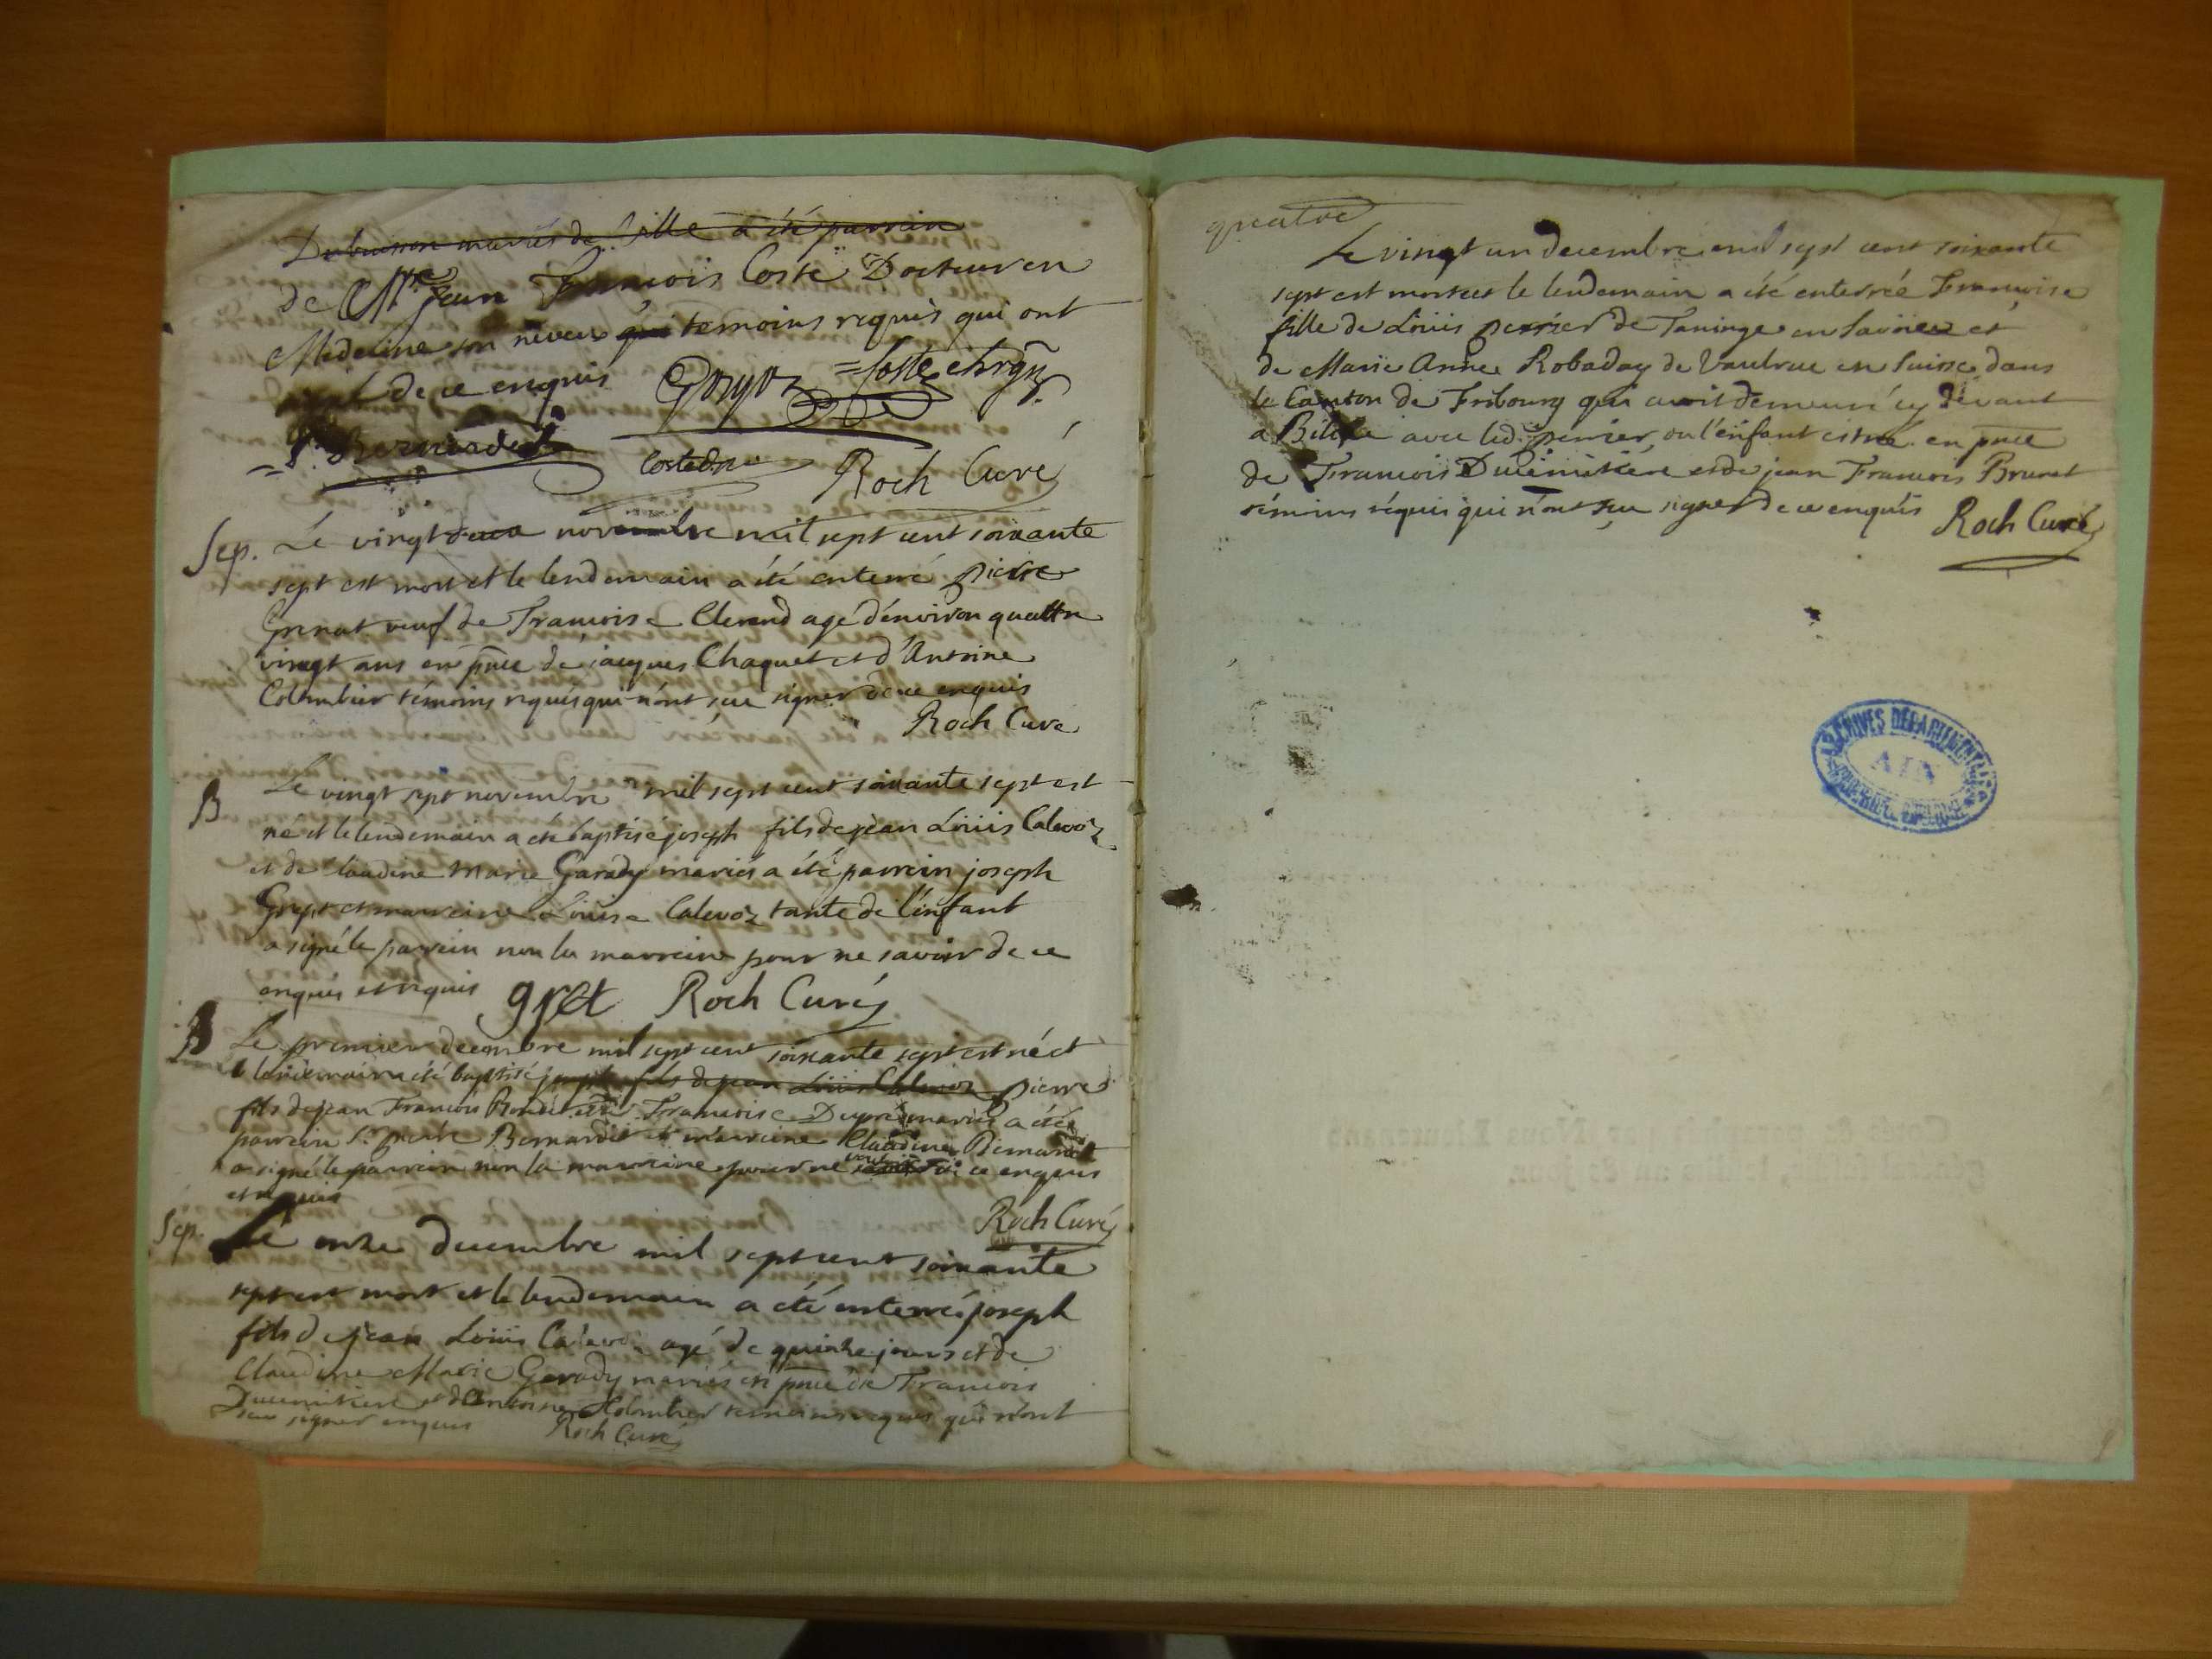 Dubuisson mariés de ville a été parrain
de Mre jean François Coste Docteur en
Medecine son neveu qui temoins requis qui ont
signé de ce enquis Goyoz = Coste chrgn
= P. Bernardet Costedm Roch Curé
Sep. Le vingt deux novembre mil sept cent soixante
sept est mort et le lendemain a été enterré pierre
Grenat veuf de Francoise Clerend agé d'énviron quattre
vingt ans en pnce de jacques Chaquet et d'Antoine
Colombier témoins requis qui n'ont sçu signer de ce enquis
Roch Curé
B Le vingt sept novembre mil sept cent soixante sept est
né et le lendemain a été baptisé joseph fils de jean Loüis Calevoz
et de claudine Marie Garady mariés a été parrein joseph
Grept et marreine Loüise Calevoz tante de l'enfant
a signé le parrein non la marreine pour ne savoir de ce
enquis et requis gret Roch Curé
B Le premier decembre mil sept cent soixante sept est né et
le lendemain a été baptisé joseph fils de jean Loüis Calevoz pierre
fils de jean Francois et de Francoise Dupré mariés a été
parrein Sr. pierre Bernardet et marreine Claudine Bernardet
a signé le parrein non la marreine pour ne savoir de ce enquis
et requis
Roch Curé
Sep. Le onze decembre mil sept cent soixante
sept est mort et le lendemain a été enterré joseph
fils de jean Loüis Calevoz agé de quinze jours et de
Claudine Marie Garady mariés en pnce de Francois
Ducimitiere et d'Antoine Colombier temoins requis qui n'ont
sçu signer enquis Roch Curé
quatre
Le vingt un decembre mil sept cent soixante
sept est morte et le lendemain a été enterrée Francoise
fille de Loüis perrier de Taninge en Savoïe et
de Marie Anne Robaday de Vaulrue en Suisse dans
le Canton de Fribourg qui avoit demeuré cy devant
a avec led. perrier, ou l'enfant est né. en pnce
de Francois Ducimitiére et de jean Francois Brunet
témoins réquis qui n'ont sçu signer de ce enquis Roch Curé
ARCHIVES DÉPARTEMENTALES
AIN